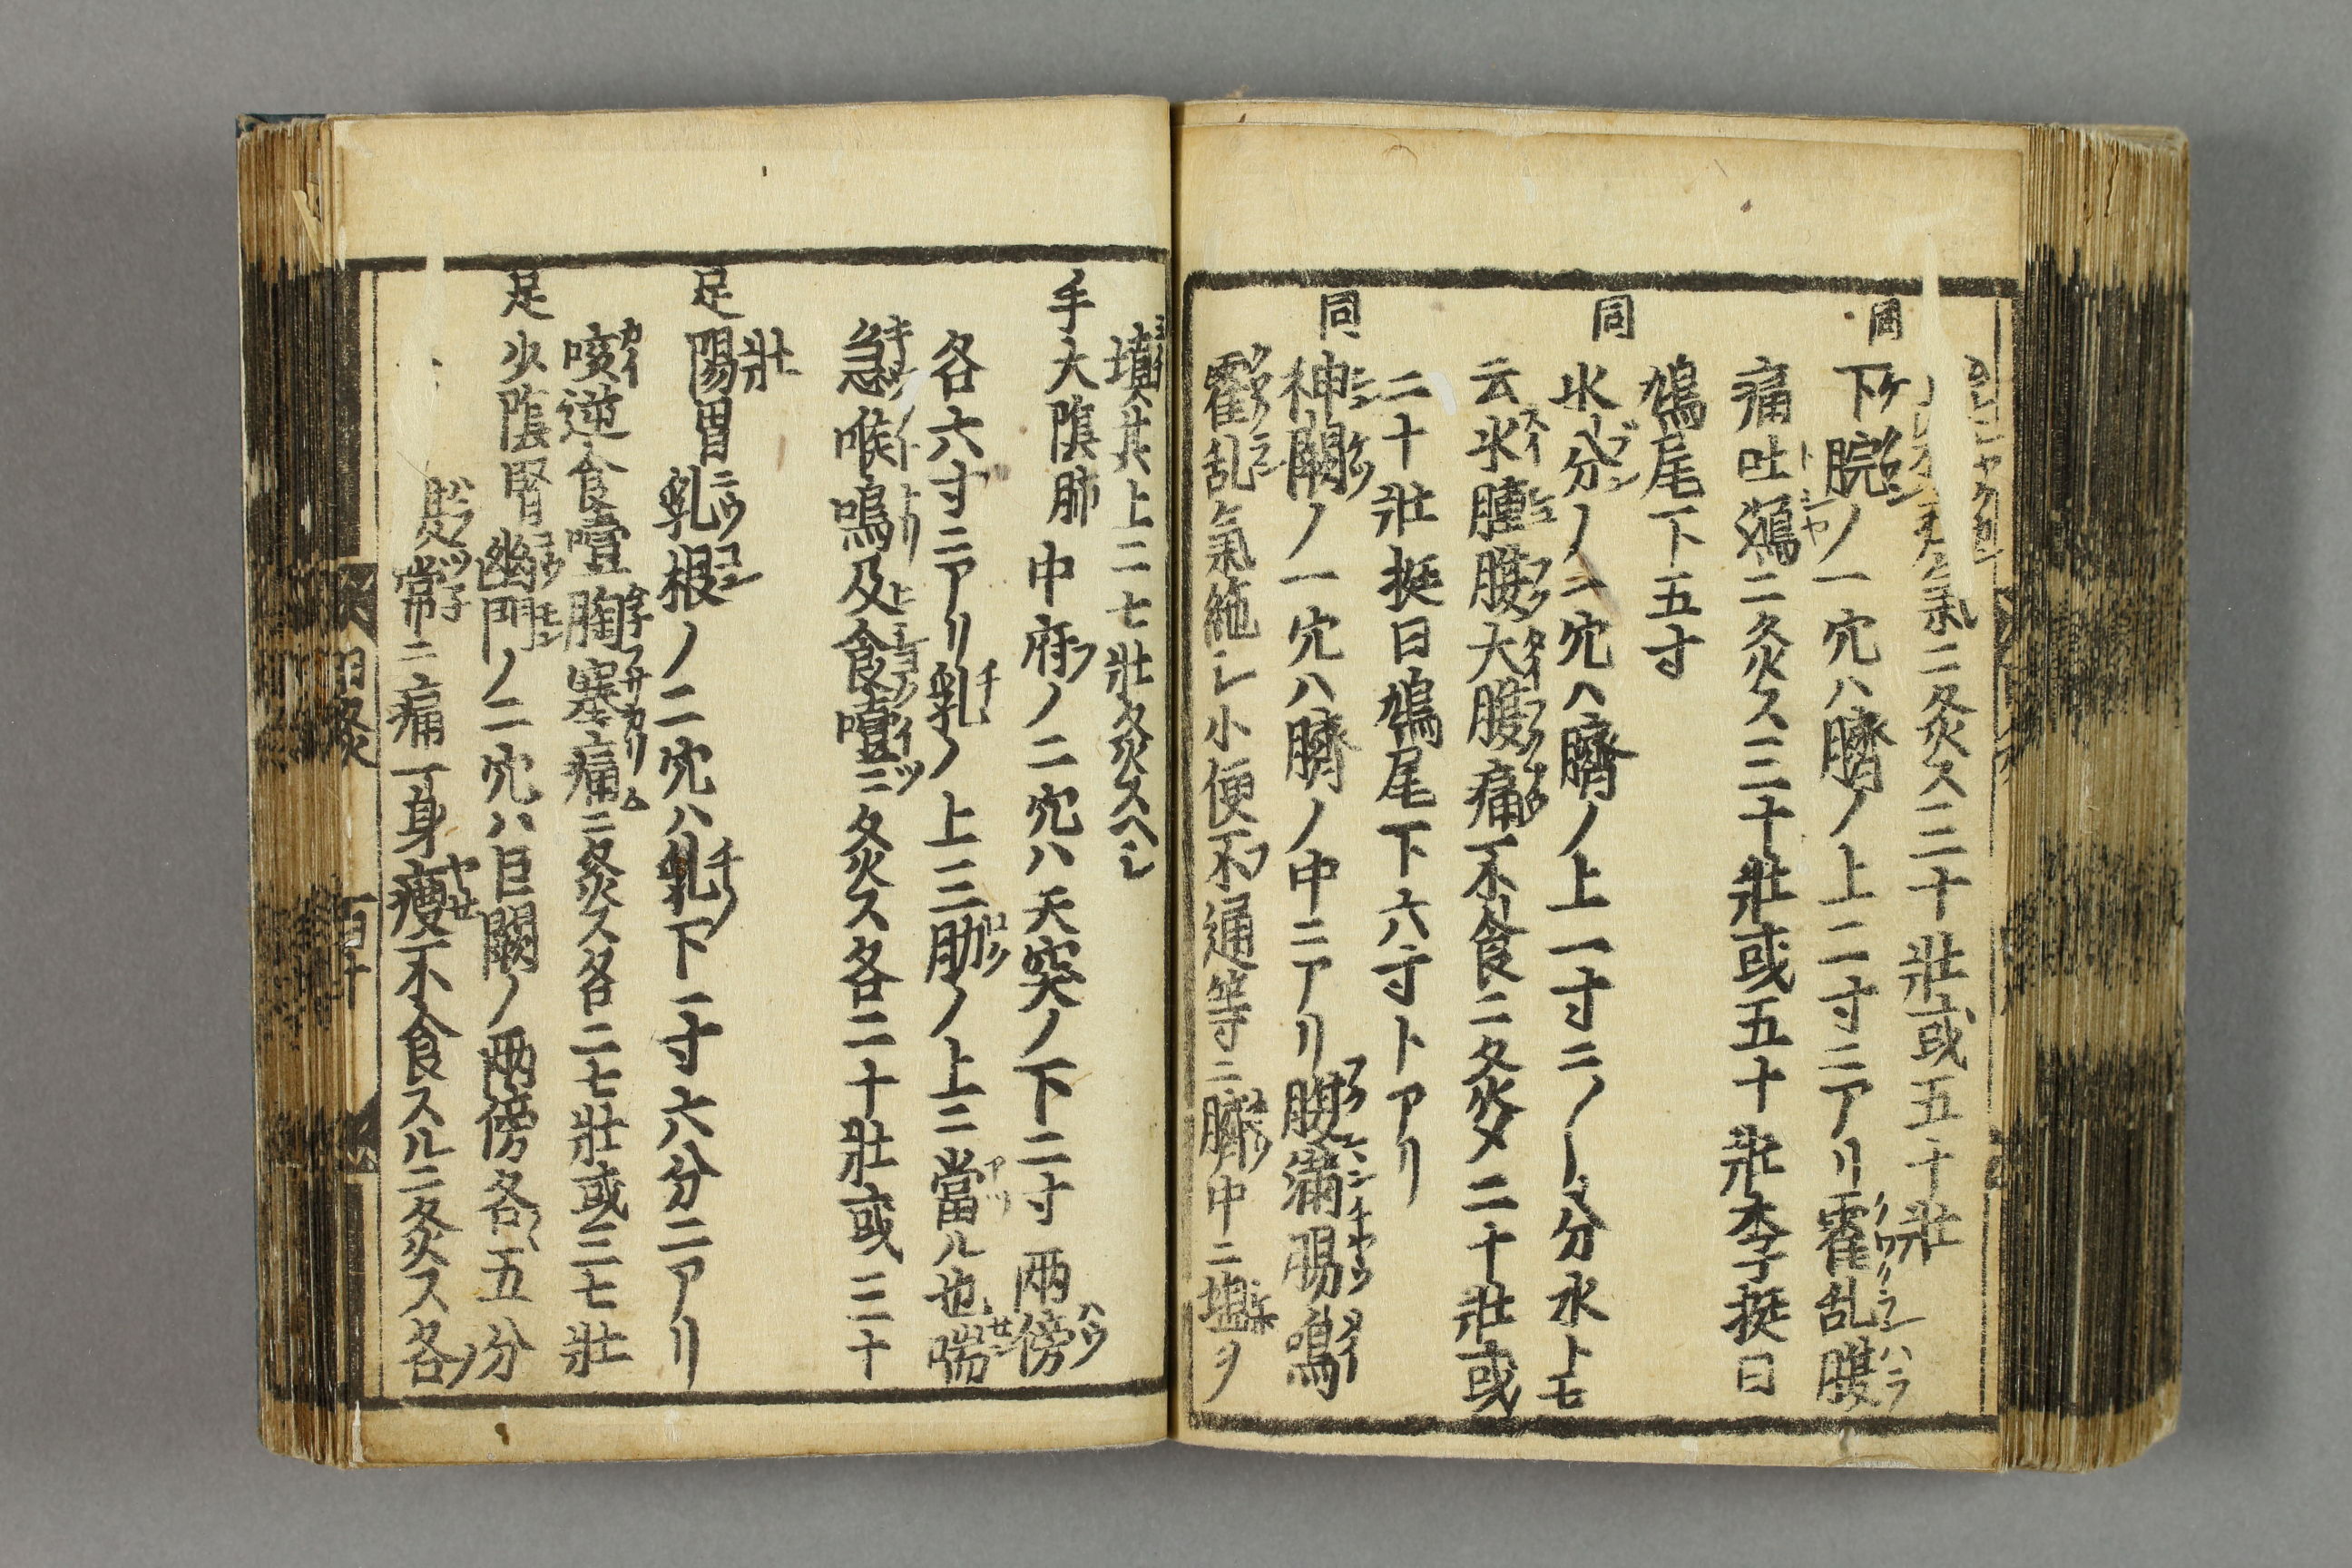 氣ニ灸ス三十壯或五十壯
同 下脘ノ一穴ハ臍ノ上二寸ニアリ霍乱腹
痛吐瀉ニ灸ス三十壯或五十壯李挻曰
鳩尾下五寸
同 水分ノ一穴ハ臍ノ上一寸ニノー分水トモ
云水腫腹大腹痛不食ニ灸〆二十壯或
二十壯挻曰鳩尾下六寸トアリ
同 神闕ノ一穴ハ臍ノ中ニアリ腹滿腸鳴
霍乱氣絶シ小便不通等ニ臍中ニ塩ヲ
塡其上二七壯灸スヘシ
手大陰肺 中府ノ二穴ハ天突ノ下二寸兩傍
各六寸ニアリ乳ノ上三肋ノ上ニ當ル也喘
急喉鳴及食噎ニ灸ス各二十壯或三十
壯
足陽胃 乳根ノ二穴ハ乳下一寸六分ニアリ
咳逆食噎胸塞痛ニ灸ス各二七壯或三七壯
足少陰腎 幽門ノ二穴ハ巨闕ノ兩傍各五分
常ニ痛身瘦不食スルニ灸ス各
灸